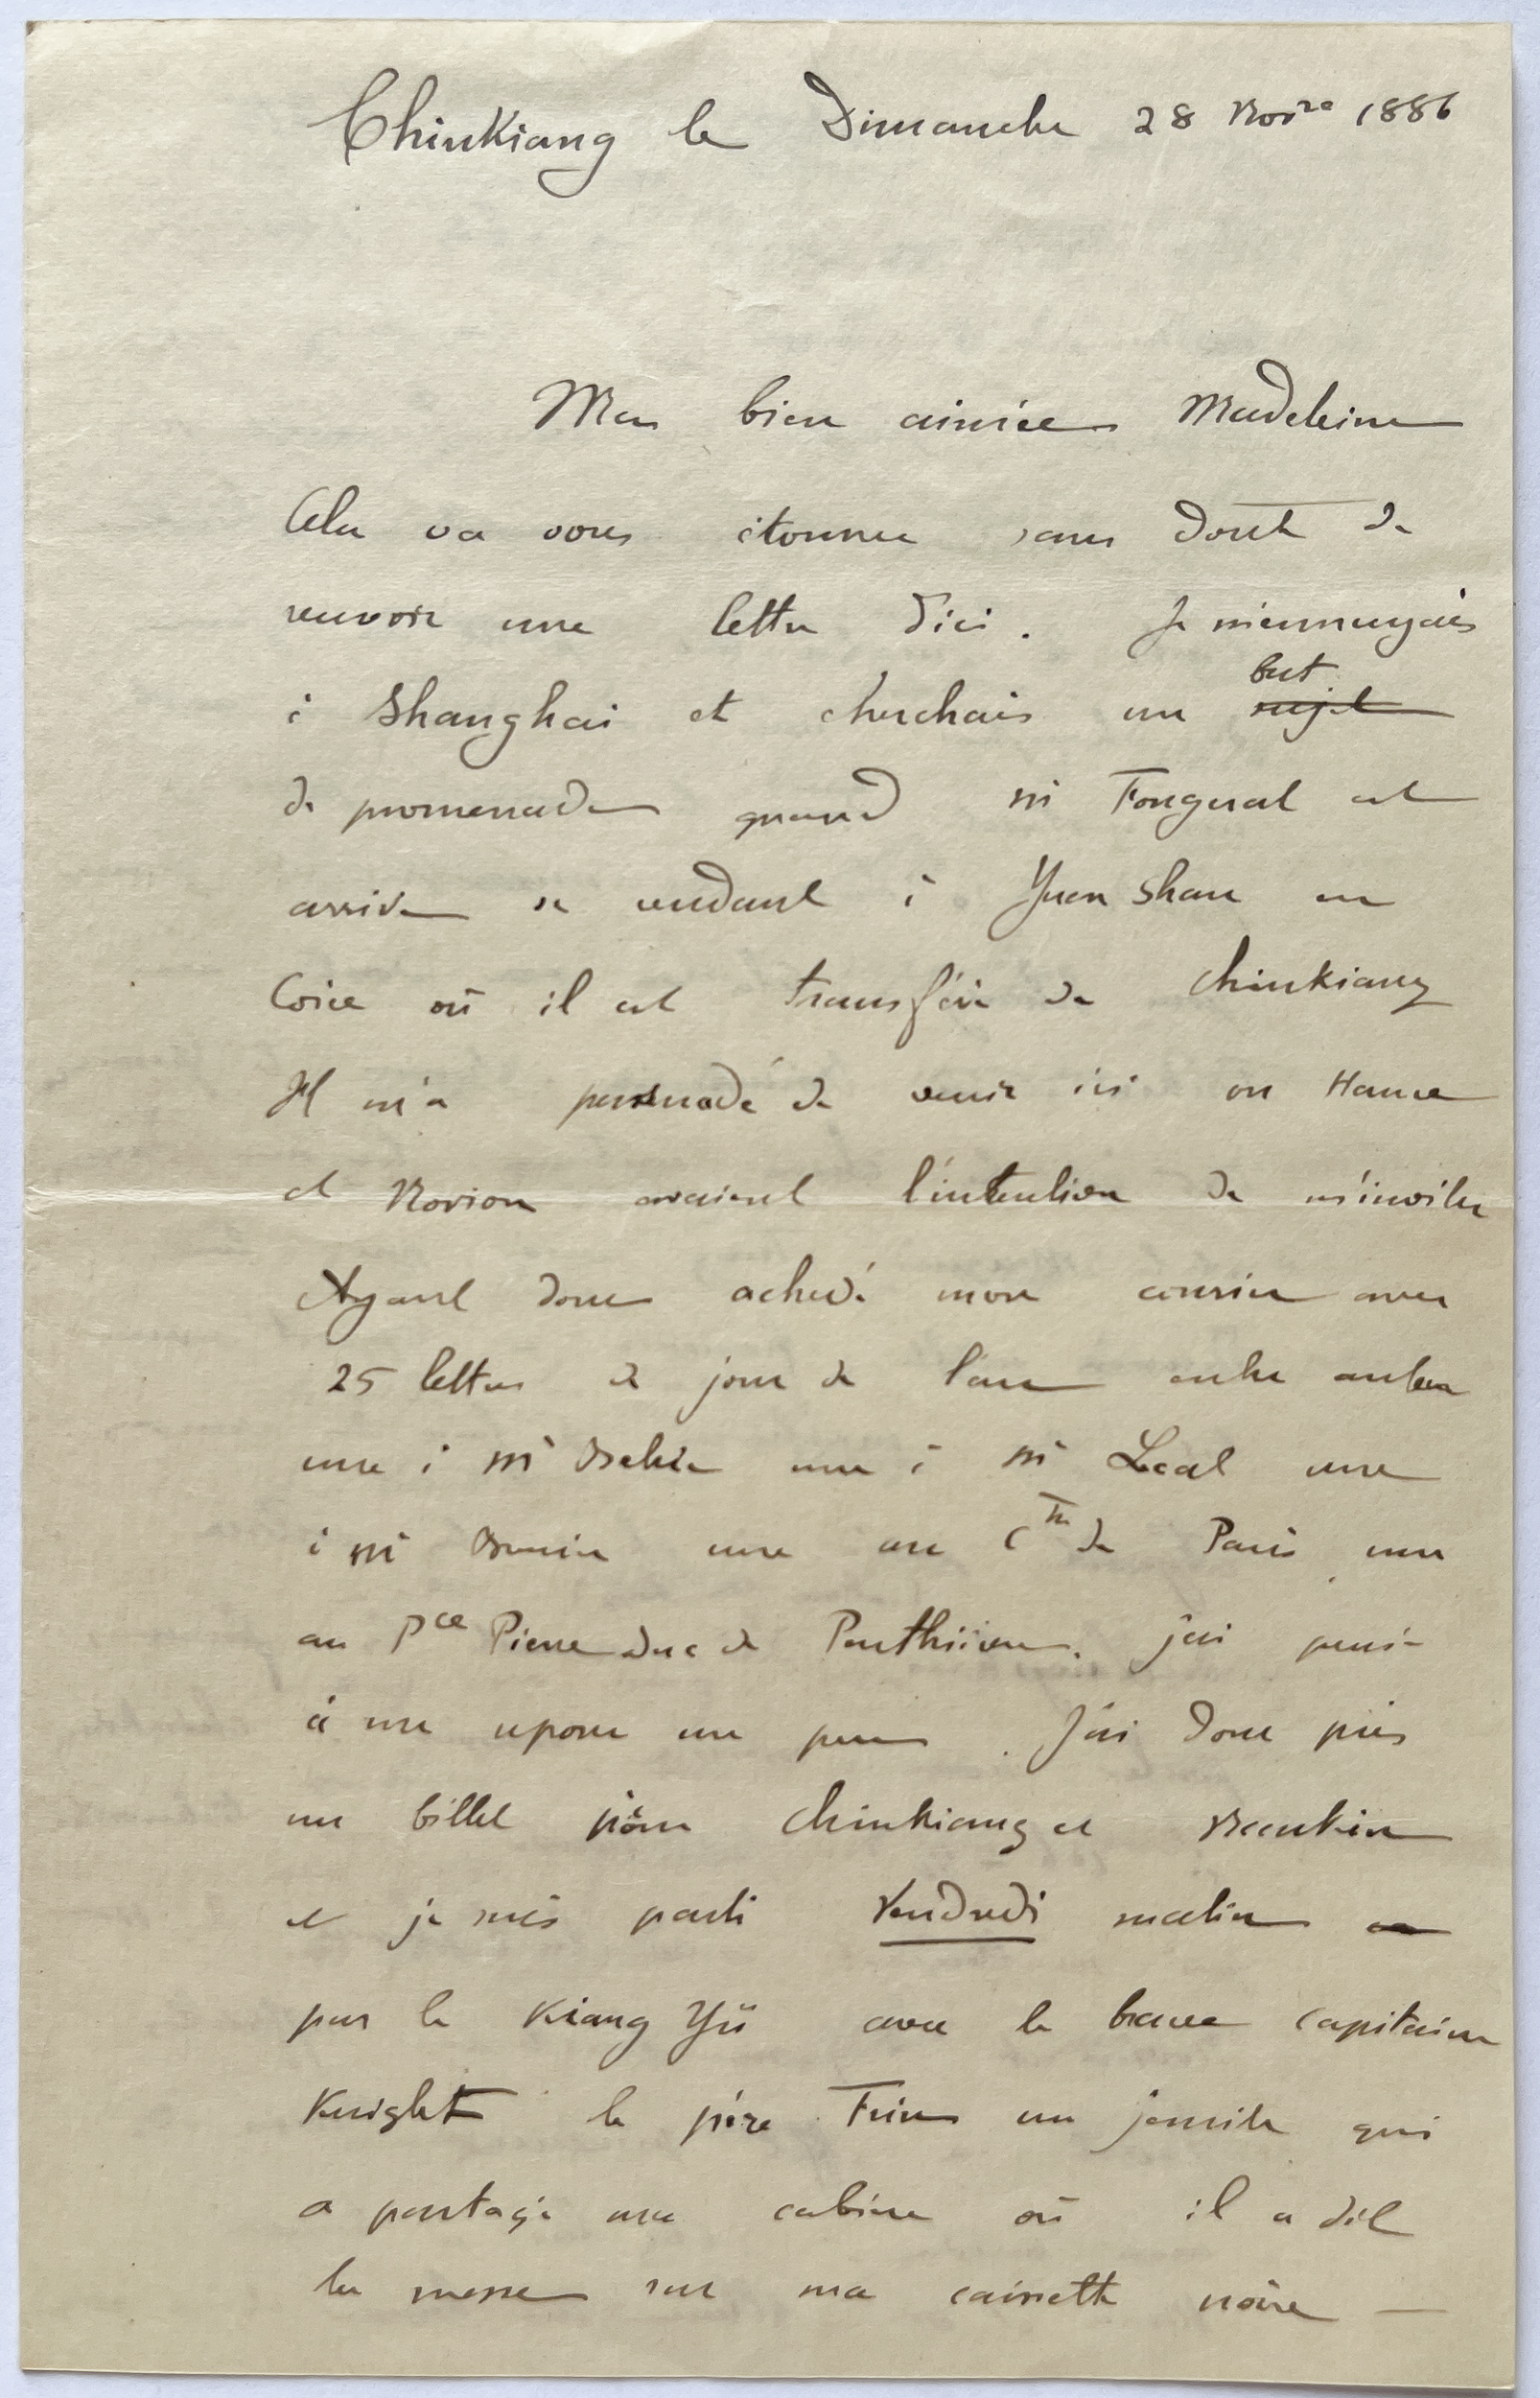 Chinkiang le Dimanche 28 Nov.re 1886
Ma bien aimée Madeleine
Cela va vous étonner sans doute de
recevoir une lettre d'ici. Je m'ennuyais
à Shanghai et cherchais un but sujet
de promenade quand Mr Fougerat est
arrivé se rendant à Yuen Shan en
Corée où il est transféré de Chinkiang
Il m'a persuadé de venir ici ou Hance
et Novion avaient l'intention de m'inviter
Ayant donc achevé mon courrier avec
25 lettres de jour de l'an entre autres
une à Mr une à Mr Leal une
à Mr une au Cte de Paris une
au Pce Pierre duc de Penthièvre. j'ai pensé
à me reposer un peu. J'ai donc pris
un billet pour Chinkiang et Nankin
et je suis parti Vendredi matin
par le Kiang Yü avec le brave capitaine
Knight le père un jésuite qui
a partagé ma cabine où il a dit
la messe sur ma caissette noire —